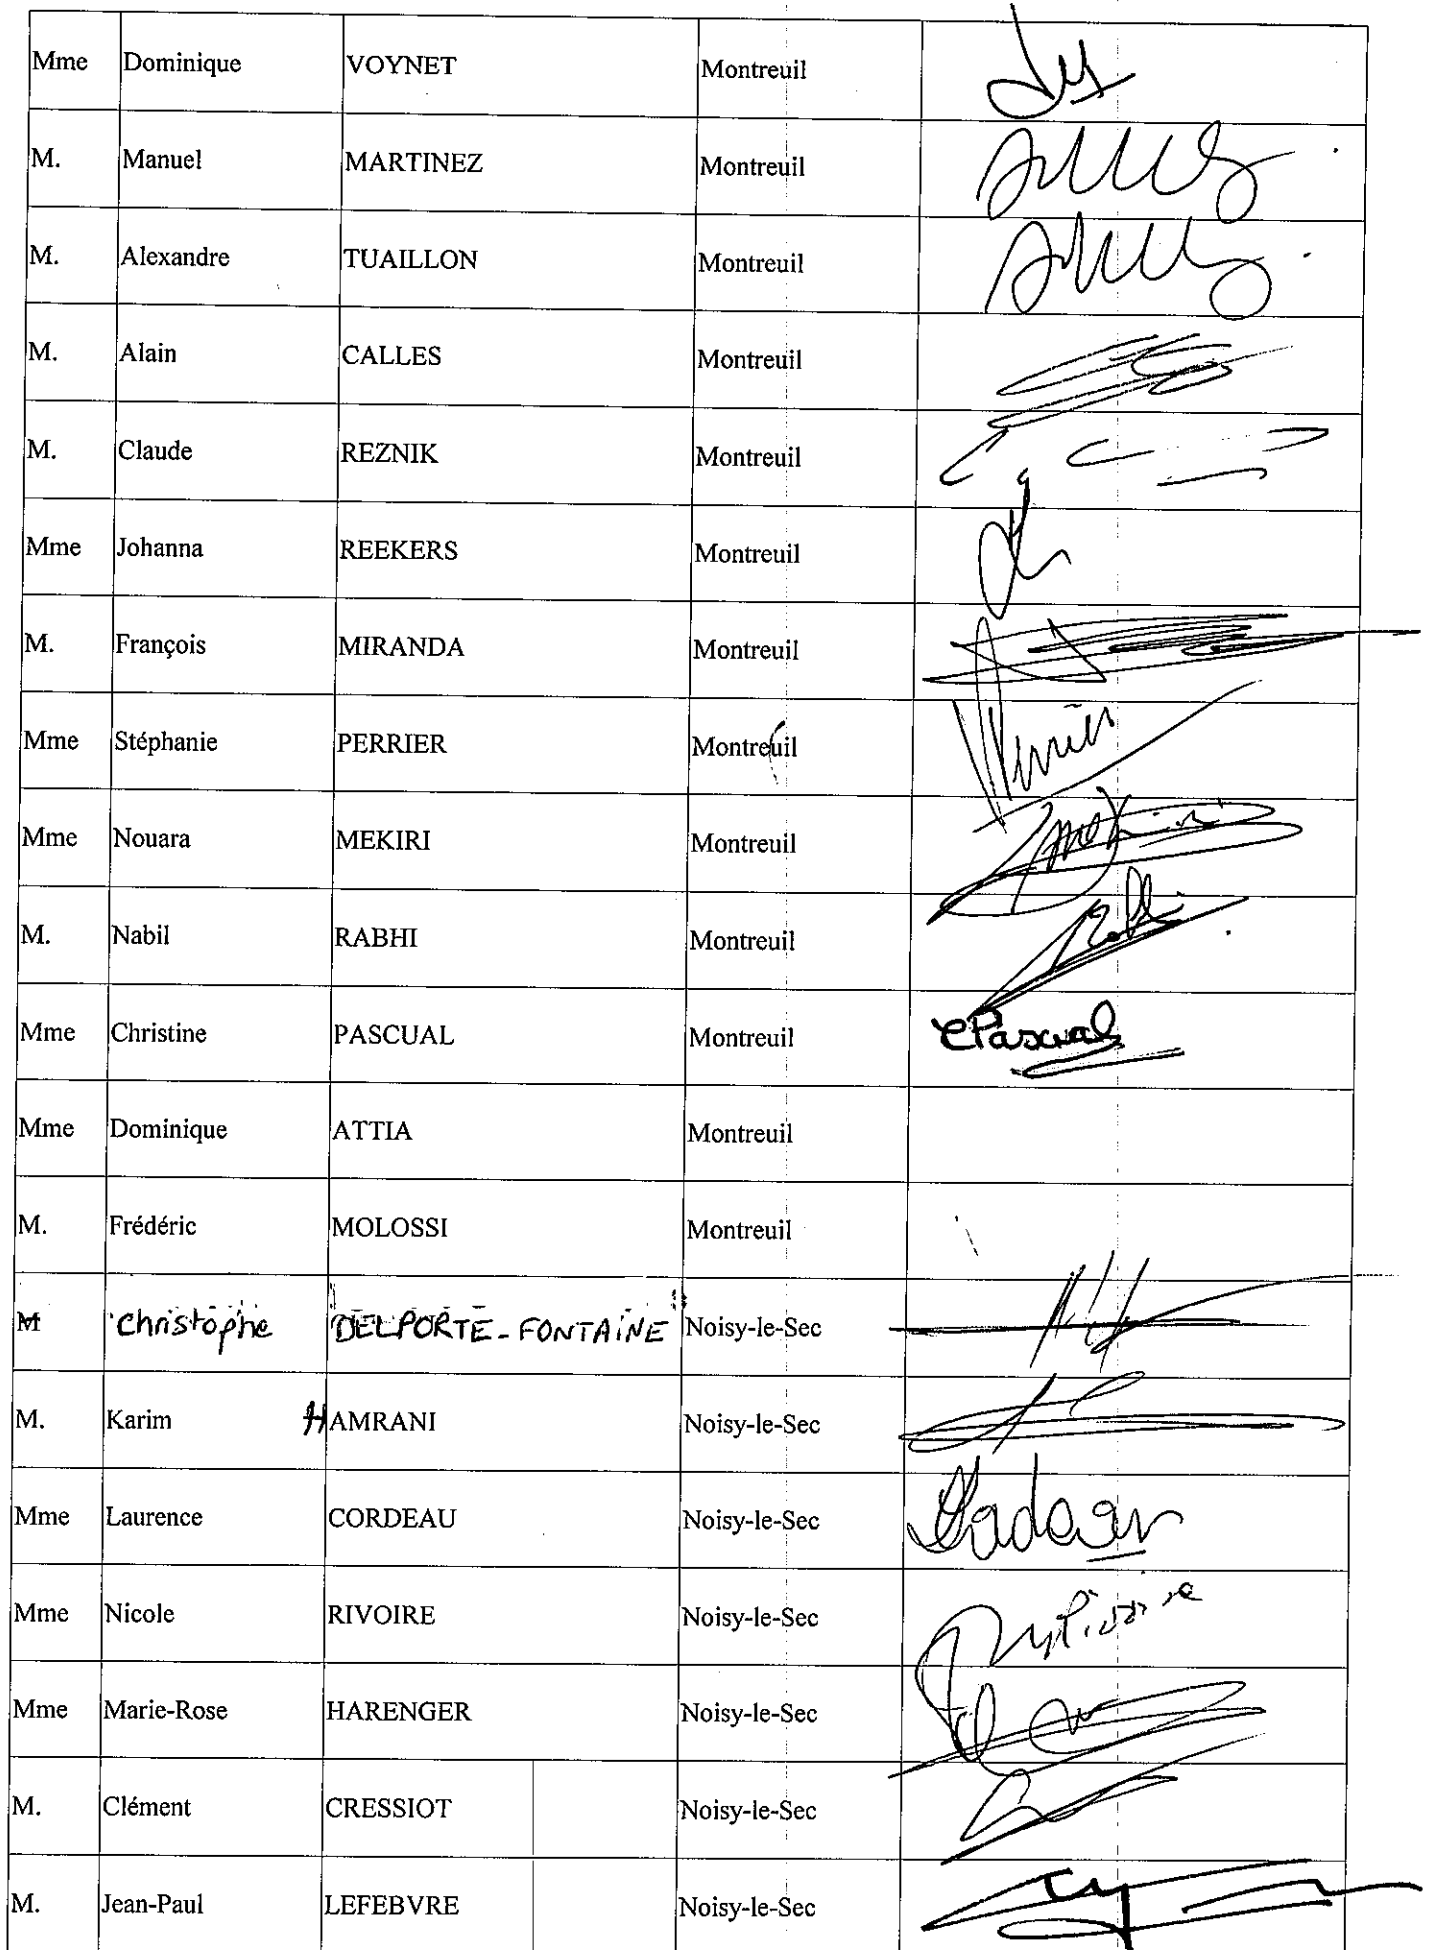 Mme Dominique VOYNET Montreuil
M. Manuel MARTINEZ Montreuil
M. Alexandre TUAILLON Montreuil
M. Alain CALLES Montreuil
M. Claude REZNIK Montreuil
Mme Johanna REEKERS Montreuil
M. François MIRANDA Montreuil
Mme Stéphanie PERRIER Montreuil
Mme Nouara MEKIRI Montreuil
M. Nabil RABHI Montreuil
Mme Christine PASCUAL Montreuil CPascual
Mme Dominique ATTIA Montreuil
M. Frédéric MOLOSSI Montreuil
M Christophe DELPORTE-FONTAINE Noisy-le-Sec
M. Karim HAMRANI Noisy-le-Sec
Mme Laurence CORDEAU Noisy-le-Sec
Mme Nicole RIVOIRE Noisy-le-Sec
Mme Marie-Rose HARENGER Noisy-le-Sec
M. Clément CRESSIOT Noisy-le-Sec
M. Jean-Paul LEFEBVRE Noisy-le-Sec